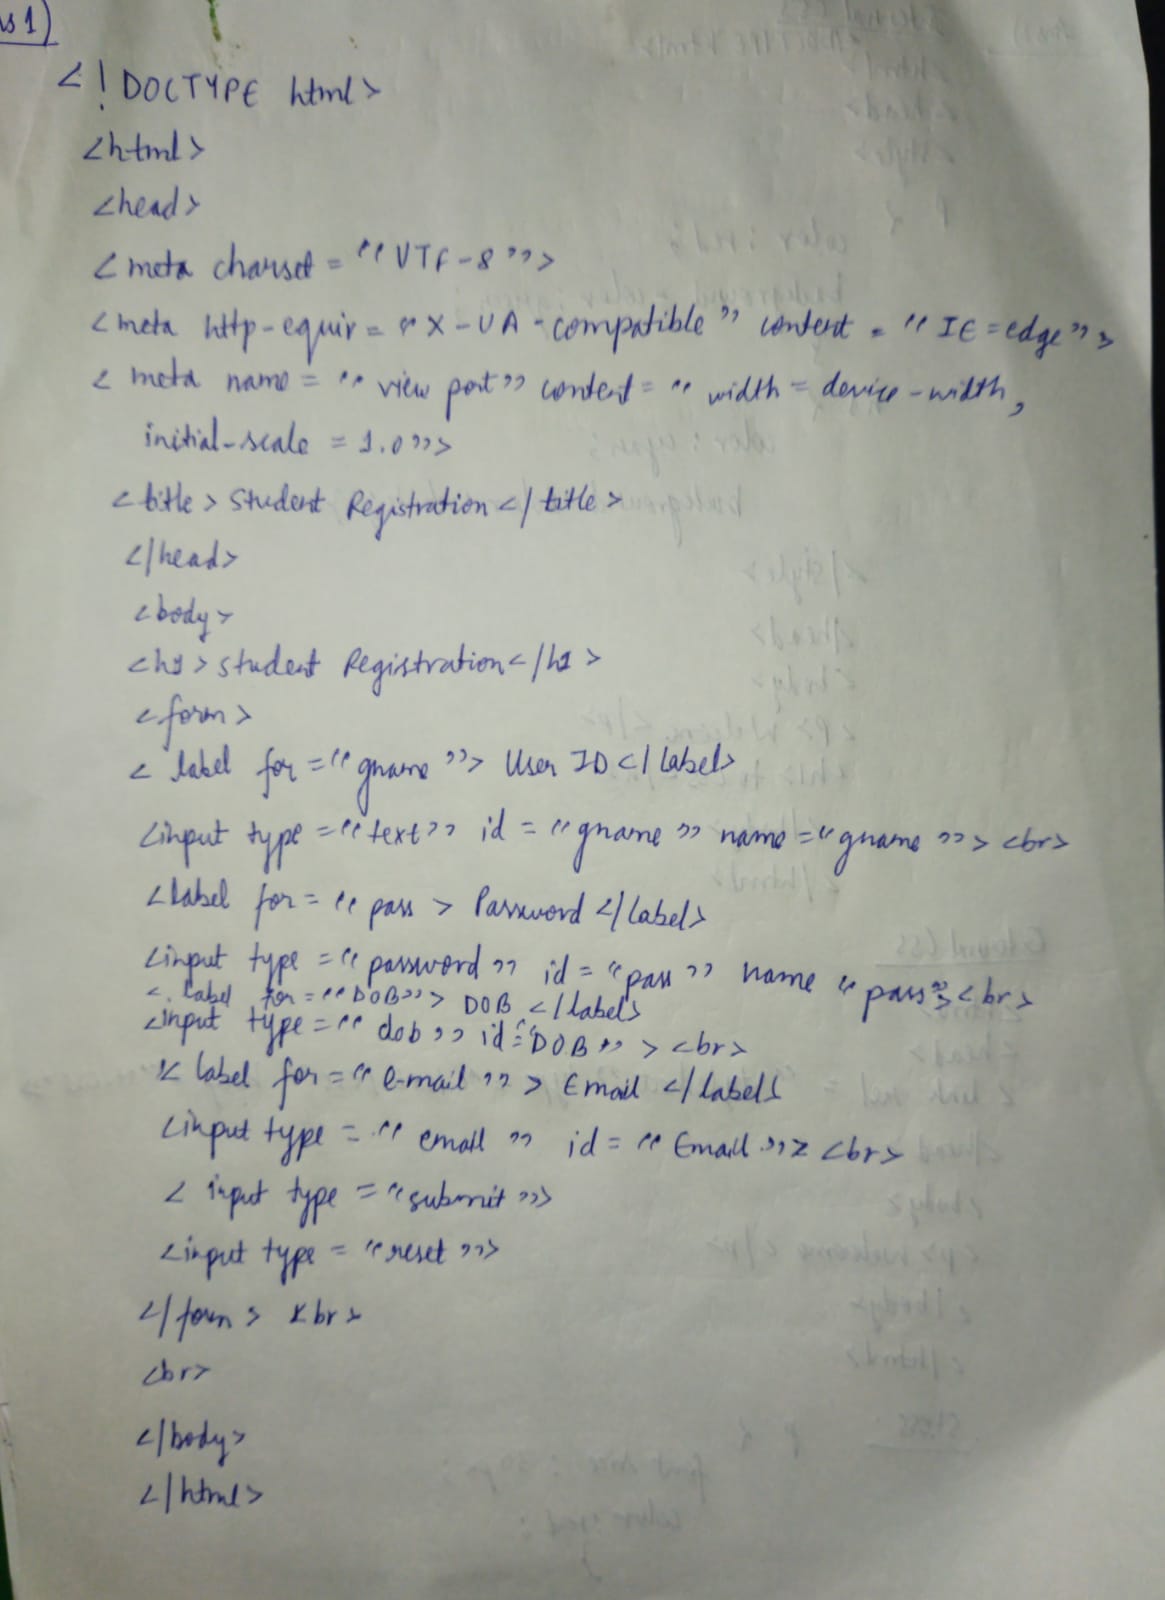 ns 1)
<!DOCTYPE html>
<html>
<head>
<meta charset = "UTF-8">
<meta http-equiv = "X-UA-compatible" content = "IE=edge">
<meta name = "view port" content = "width = device-width,
initial-scale = 1.0">
<title> Student Registration </title>
</head>
<body>
<h1> Student Registration </h1>
<form>
<label for = "gname"> User ID </label>
<input type = "text" id = "gname" name = "gname"> <br>
<label for = "pass > Password </label>
<input type = "password" id = "pass" name "pass"> <br>
<label for = "DOB"> DOB </label>
<input type = "dob" id = "DOB" > <br>
<label for = "e-mail" > Email </label>
<input type = "email" id = "Email"> <br>
<input type = "submit">
<input type = "reset">
</form> <br>
<br>
</body>
</html>